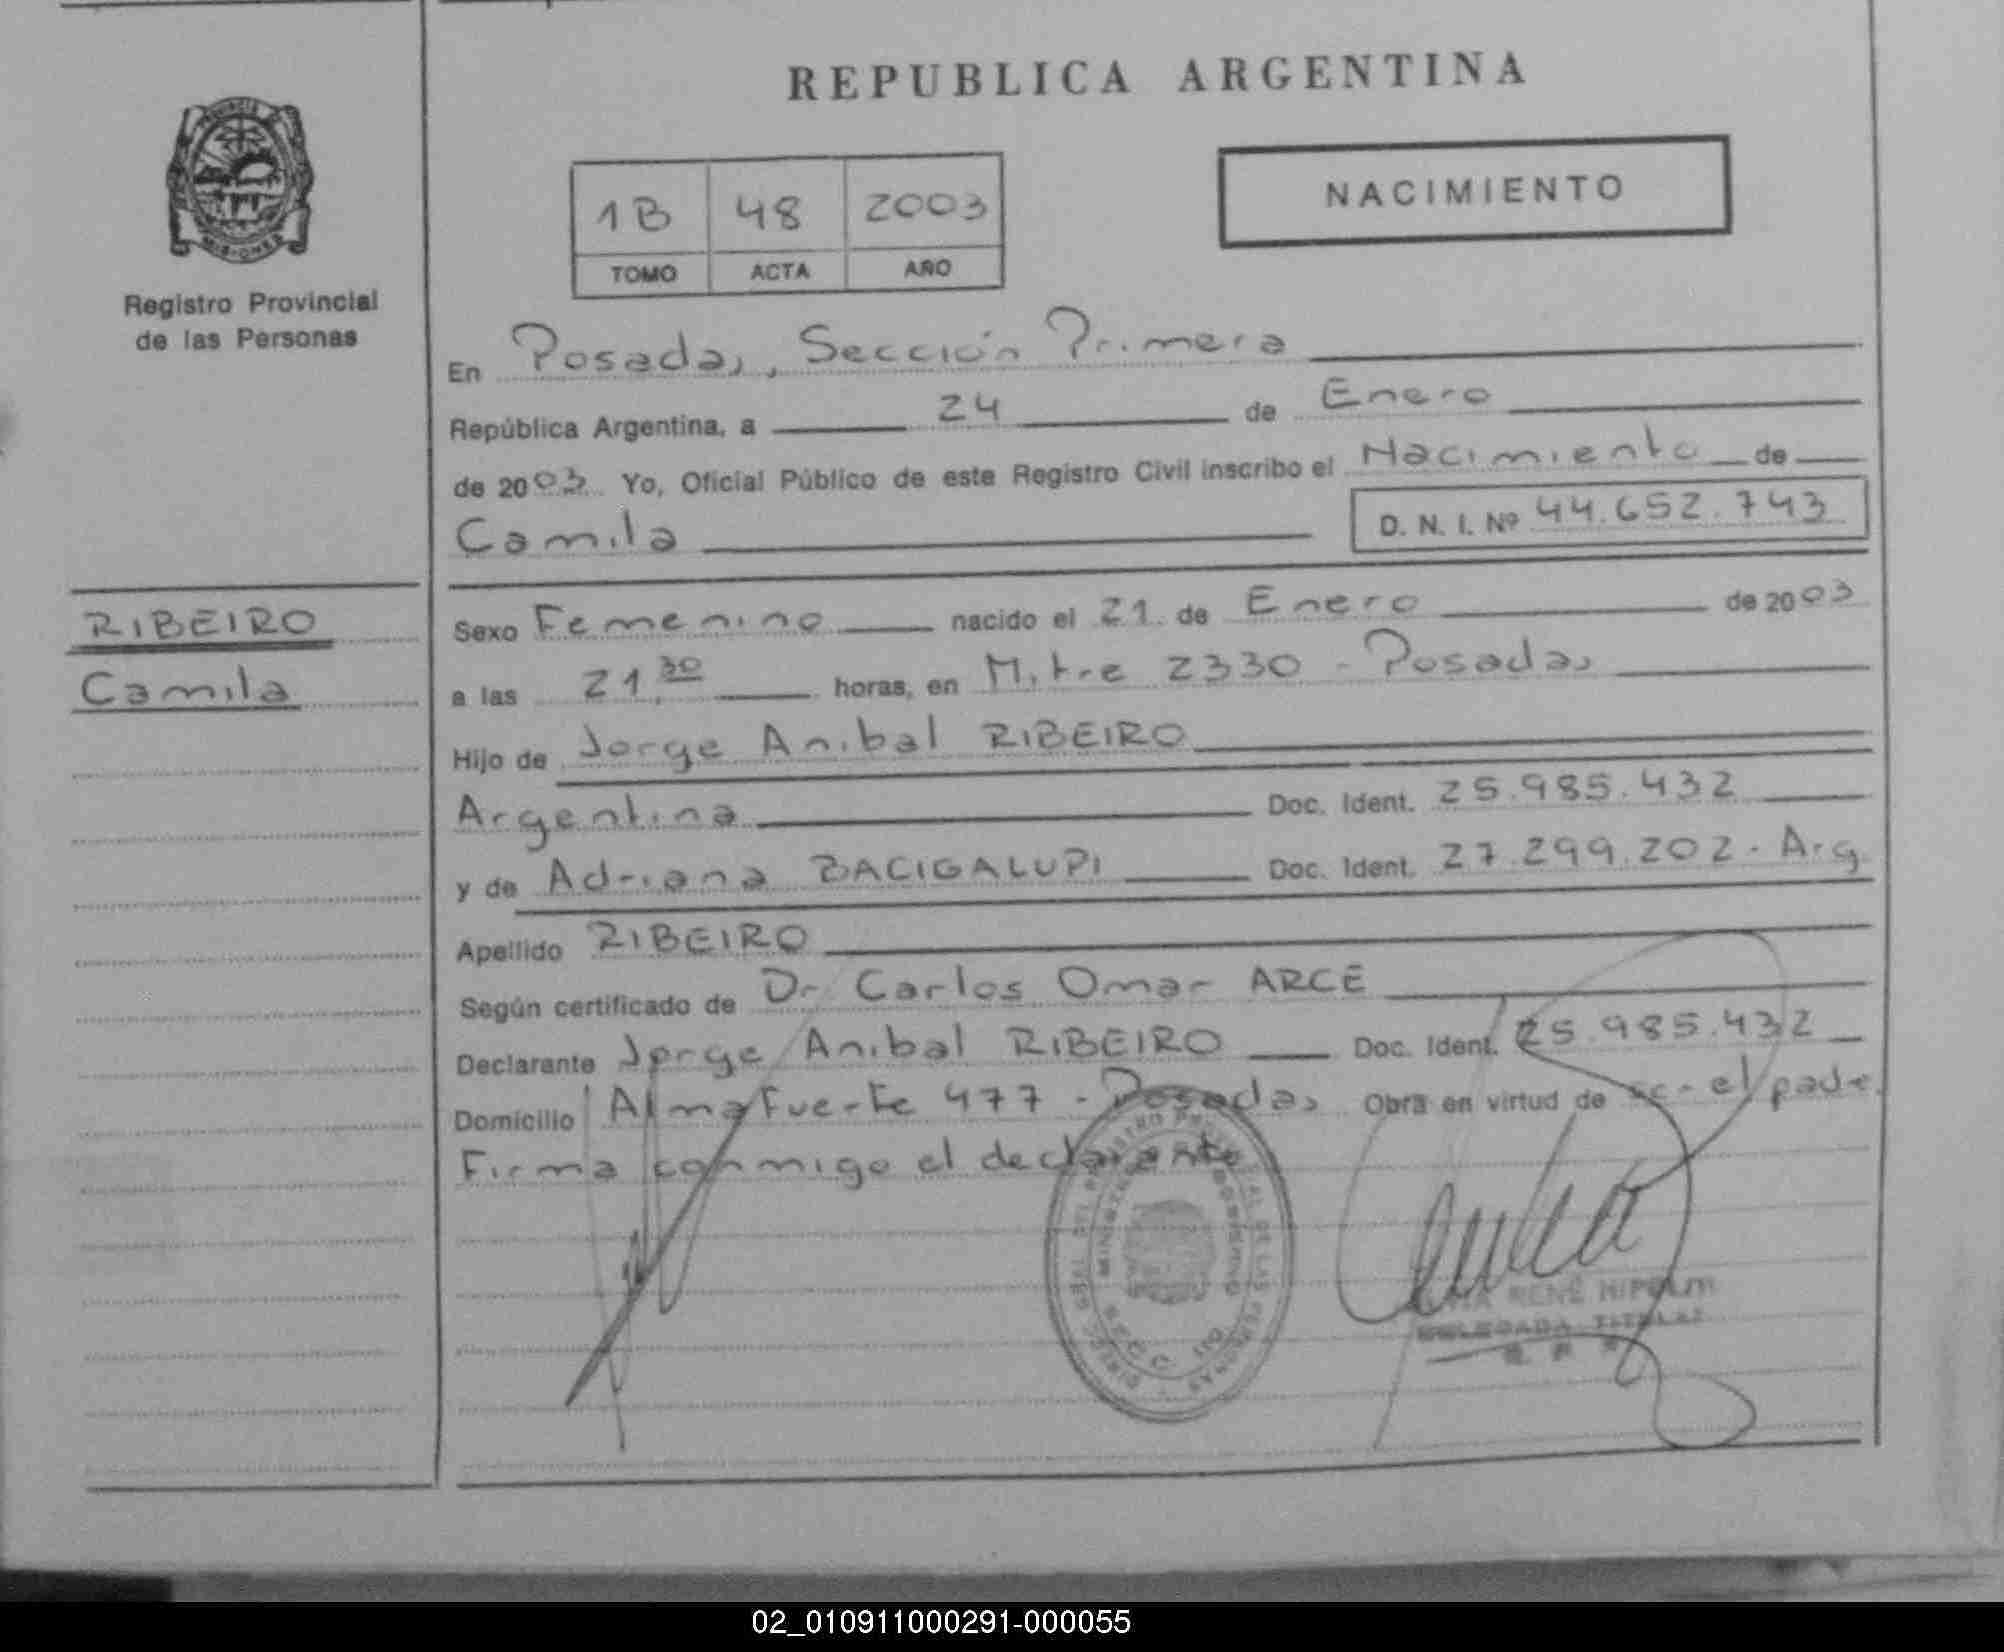 REPUBLICA ARGENTINA
NACIMIENTO
1B 48 2003
TOMO ACTA AÑO
PROVINCIA
MISIONES
Registro Provincial
de las Personas
En Posadas, Sección Primera
República Argentina, a 24 de Enero
de 2003 Yo, Oficial Público de este Registro Civil inscribo el Nacimiento de
Camila D. N. I. Nº 44.652.743
RIBEIRO
Camila
Sexo Femenino nacido el 21 de Enero de 2003
a las 21,30 horas, en Mitre 2330 - Posadas
Hijo de Jorge Anibal RIBEIRO
Argentina Doc. Ident. 25.985.432
y de Adriana BACIGALUPI Doc. Ident. 27.299.202. Arg
Apellido RIBEIRO
Según certificado de Dr Carlos Omar ARCE
Declarante Jorge Anibal RIBEIRO Doc. Ident. 25.985.432
Domicilio Almafuerte 477 - Posadas Obra en virtud de ser el padre.
Firma conmigo el declarante
RENÉ
DELEGADA TITULAR
02_010911000291-000055